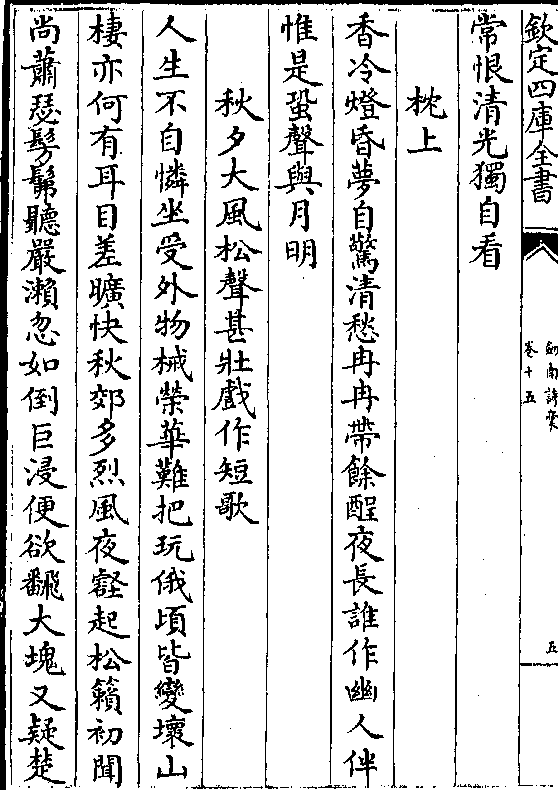 欽定四庫全書
劍南詩槀
卷十五
五
常恨清光獨自看
枕上
香冷燈昏夢自驚清愁冉冉帶餘酲夜長誰作幽人伴
惟是蛩聲與月明
秋夕大風松聲甚壯戲作短歌
人生不自憐坐受外物械榮華難把玩俄頃皆變壞山
棲亦何有耳目差曠快秋郊多烈風夜壑起松籟初聞
尚蕭瑟髣髴聽嚴瀨忽如倒巨浸便欲飜大塊又疑楚